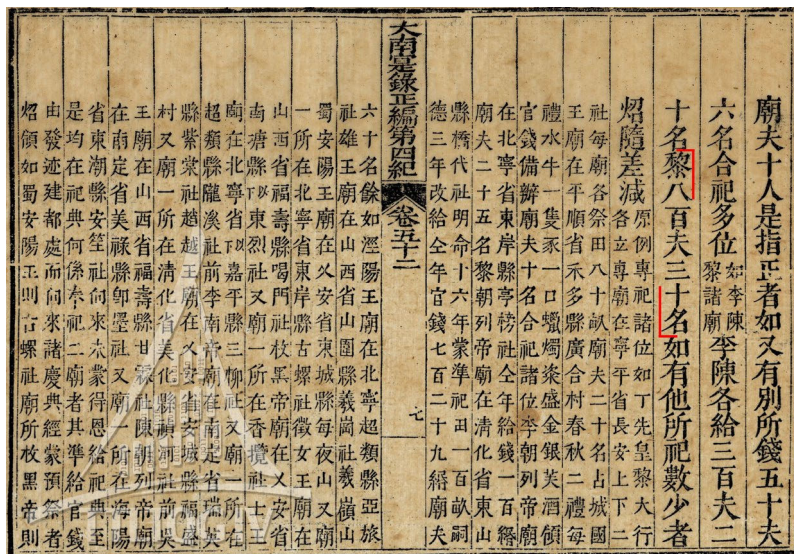 廟夫十人是指正者如又有別所錢五十夫
六名合祀多位如李陳黎諸廟李陳各給三百夫二
十名黎八百夫三十名如有他所祀數少者
炤隨差減原例專祀諸位如丁先皇黎大行
各立專廟在寧平省長安上下二
社每廟各祭田八十畝廟夫二十名占城國
王廟在平順省禾多縣廣合村春秋二禮每
禮水牛一隻豕一口蠟燭粢盛金銀芙酒領
官錢備辦廟夫十名合祀諸位李朝列帝廟
在北寧省東岸縣亭榜社仝年給錢一百緡
廟夫二十五名黎朝列帝廟在清化省東山
縣橋代社明命十六年蒙準祀田一百畝嗣
德三年改給仝年官錢七百二十九緡廟夫
大南寔錄正編第四紀 卷五十二 七
六十名餘如涇陽王廟在北寧超類縣亞旅
社雄王廟在山西省山圍縣羲崗社羲嶺山
蜀安陽王廟在乂安省東城縣每夜山又廟
一所在北寧省東岸縣古螺社徵女王廟在
山西省福壽縣喝門社枚黑帝廟在乂安省
南塘縣以東烈社又廟一所在香攬社士王
廟在北寧省以嘉平縣三柳社又廟一所在
超類縣隴溪社前李南帝廟在南定省瑞英
縣紫棠社趙越王廟在乂安省安城縣福盛
村又廟一所在清化省美化縣河社前吳
王廟在山西省福壽縣甘霖社陳朝列帝廟
在南定省美祿縣卽墨社又廟一所在海陽
省東潮縣安筮社向來未蒙得恩給祀典至
是均在祀典何係奉祀二廟者其準給官錢
由發迹建都處而向來諸慶典經蒙預祭者
炤領如蜀安陽王則古螺社廟所枚黑帝則